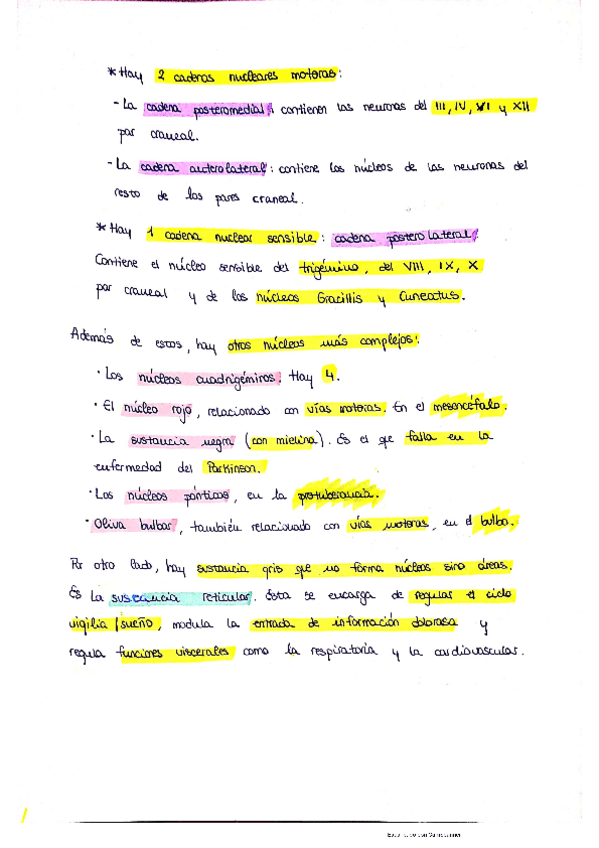 * Hay 2 cadenas nucleares motoras:
- La cadena posteromedial: contienen las neuronas del III, IV, VI y XII
par craneal.
- La cadena anterolateral: contiene los núcleos de las neuronas del
resto de los pares craneal.
* Hay 1 cadena nuclear sensible: cadena posterolateral:
Contiene el núcleo sensible del trigémino, del VIII, IX, X
par craneal y de los núcleos Gracillis y Cuneatus.
Además de estos, hay otros núcleos más complejos:
· Los núcleos cuadrigéminos. Hay 4.
· El núcleo rojo, relacionado con vías motoras. En el mesencéfalo.
· La sustancia negra (con mielina). Es el que falla en la
enfermedad del Parkinson.
· Los núcleos pónticos, en la protuberancia.
· Oliva bulbar, también relacionado con vías motoras, en el bulbo.
Por otro lado, hay sustancia gris que no forma núcleos sino áreas.
Es la sustancia reticular. Esta se encarga de regular el ciclo
vigilia/sueño, modula la entrada de información dolorosa y
regula funciones viscerales como la respiratoria y la cardiovascular.
Escaneado con CamScanner